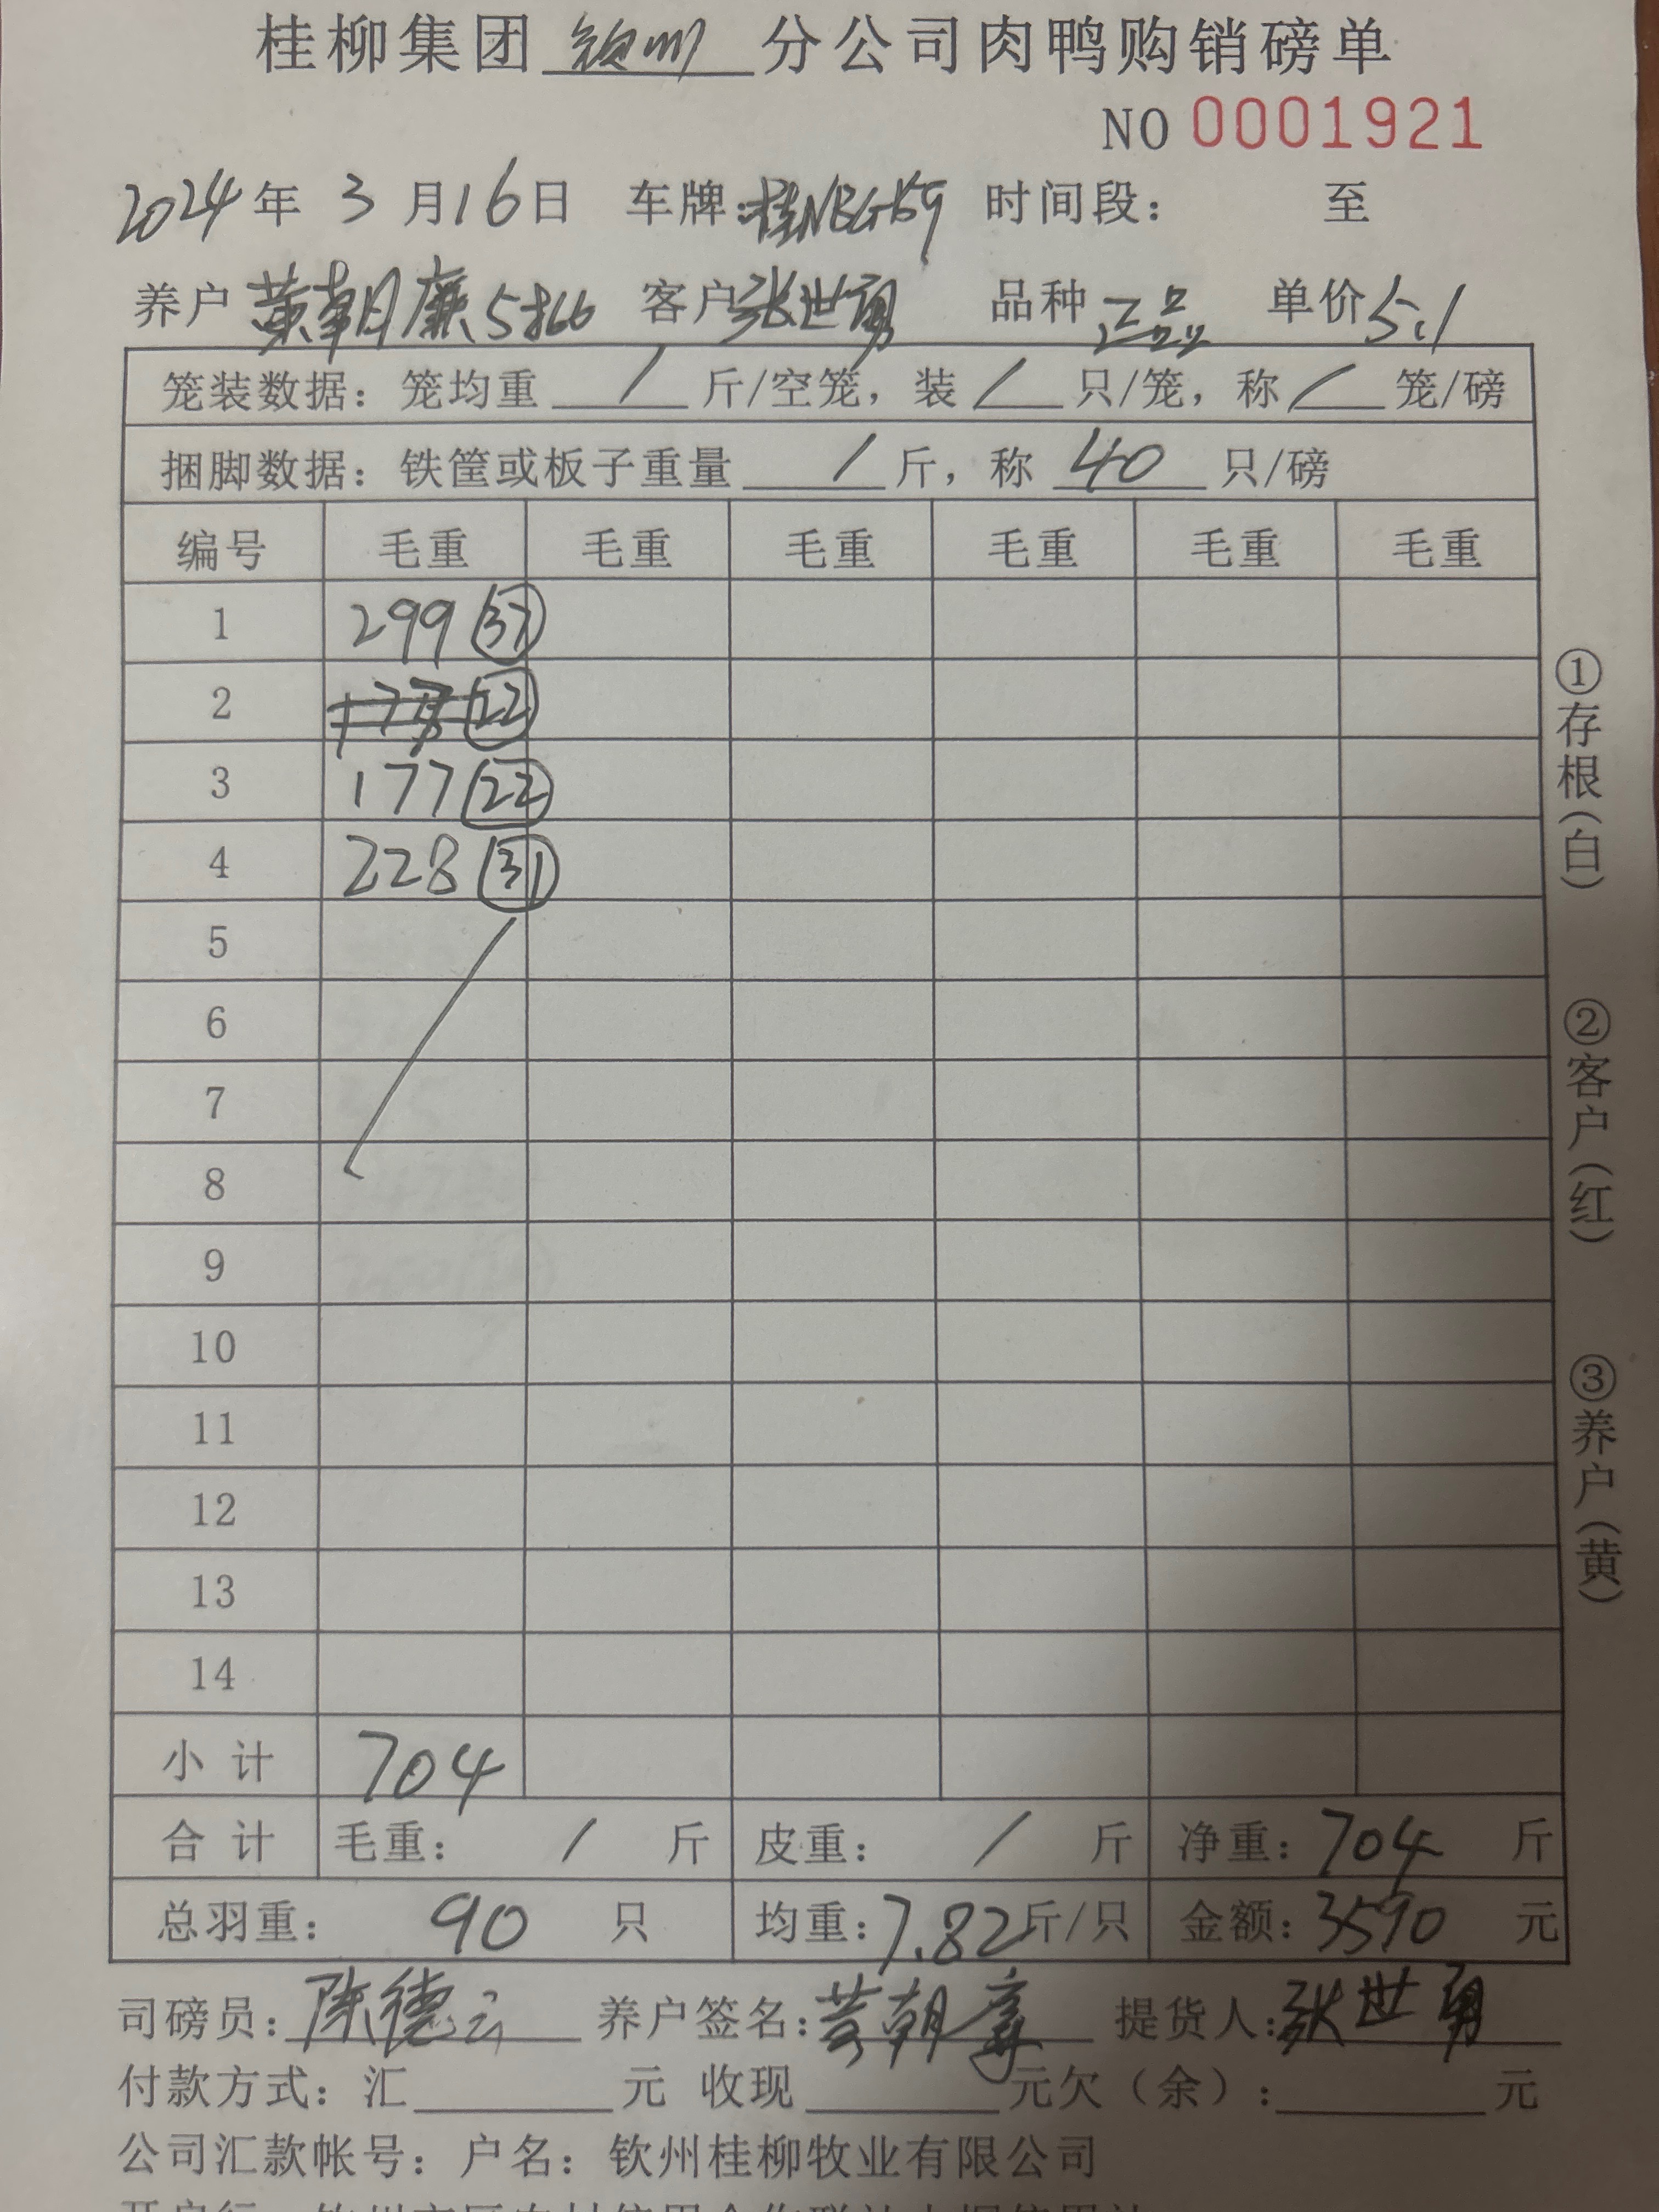 桂柳集团 钦州 分公司肉鸭购销磅单
NO 0001921
2024 年 3 月 16 日 车牌: 时间段: 至
养户 黄朝廉 5批 客户 张世勇 品种 正品 单价 5.1
笼装数据: 笼均重 / 斤/空笼, 装 / 只/笼, 称 / 笼/磅
捆脚数据: 铁筐或板子重量 / 斤, 称 40 只/磅
编号 毛重 毛重 毛重 毛重 毛重 毛重
1 299 (37)
2
3 177 (22)
4 228 (31)
5
6
7
8
9
10
11
12
13
14
小计 704
合计 毛重: / 斤 皮重: / 斤 净重: 704 斤
总羽重: 90 只 均重: 7.82 斤/只 金额: 3590 元
司磅员: 陈德云 养户签名: 黄朝廉 提货人: 张世勇
付款方式: 汇 元 收现 元欠(余): 元
公司汇款帐号: 户名: 钦州桂柳牧业有限公司
①存根(白)
②客户(红)
③养户(黄)